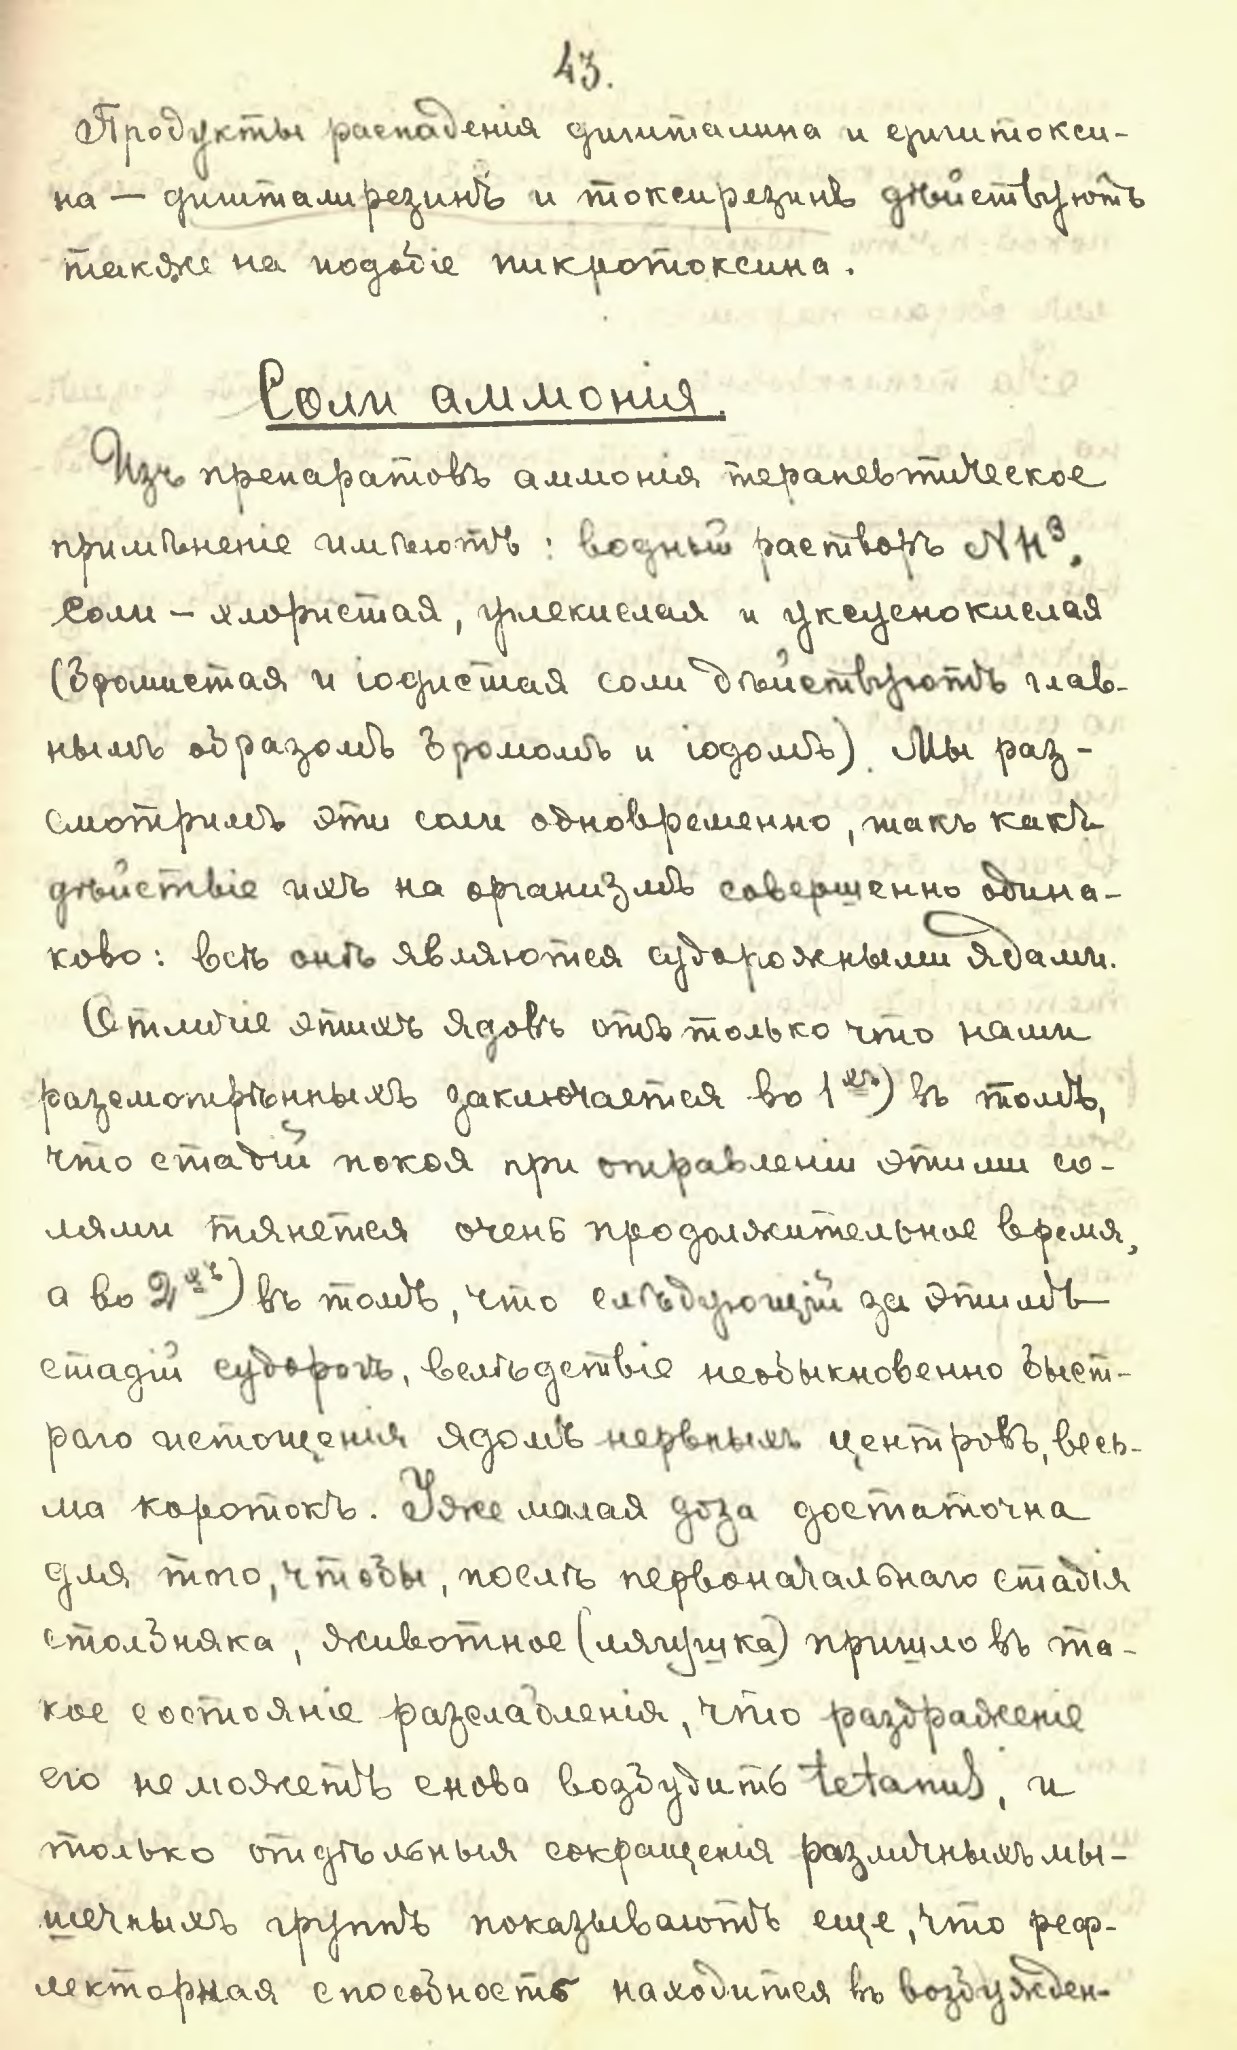 43.
Продукты распаденія дигиталина и дигитокси-
на — дигиталирезинъ и токсирезинъ дѣйствуютъ
также на подобіе пикротоксина.
Соли аммонія.
Изъ препаратовъ аммонія терапевтическое
примѣненіе имѣютъ: водный растворъ NH³,
соли – хлористая, углекислая и уксуснокислая
(бромистая и іодистая соли дѣйствуютъ глав-
нымъ образомъ бромомъ и іодомъ). Мы раз-
смотримъ эти соли одновременно, такъ какъ
дѣйствіе ихъ на организмъ совершенно одина-
ково: всѣ онѣ являются судорожными ядами.
Отличіе этихъ ядовъ отъ только что нами
разсмотрѣнныхъ заключается во 1хъ) въ томъ,
что стадій покоя при отравленіи этими со-
лями тянется очень продолжительное время,
а во 2хъ) въ томъ, что слѣдующій за этимъ
стадій судорогъ, вслѣдствіе необыкновенно быст-
раго истощенія ядомъ нервныхъ центровъ, весь-
ма коротокъ. Уже малая доза достаточна
для того, чтобы, послѣ первоначальнаго стадія
столбняка, животное (лягушка) пришло въ та-
кое состояніе разслабленія, что раздраженіе
его не можетъ снова возбудить tetanus, и
только отдѣльныя сокращенія различныхъ мы-
шечныхъ группъ показываютъ еще, что реф-
лекторная способность находится въ возбужден-